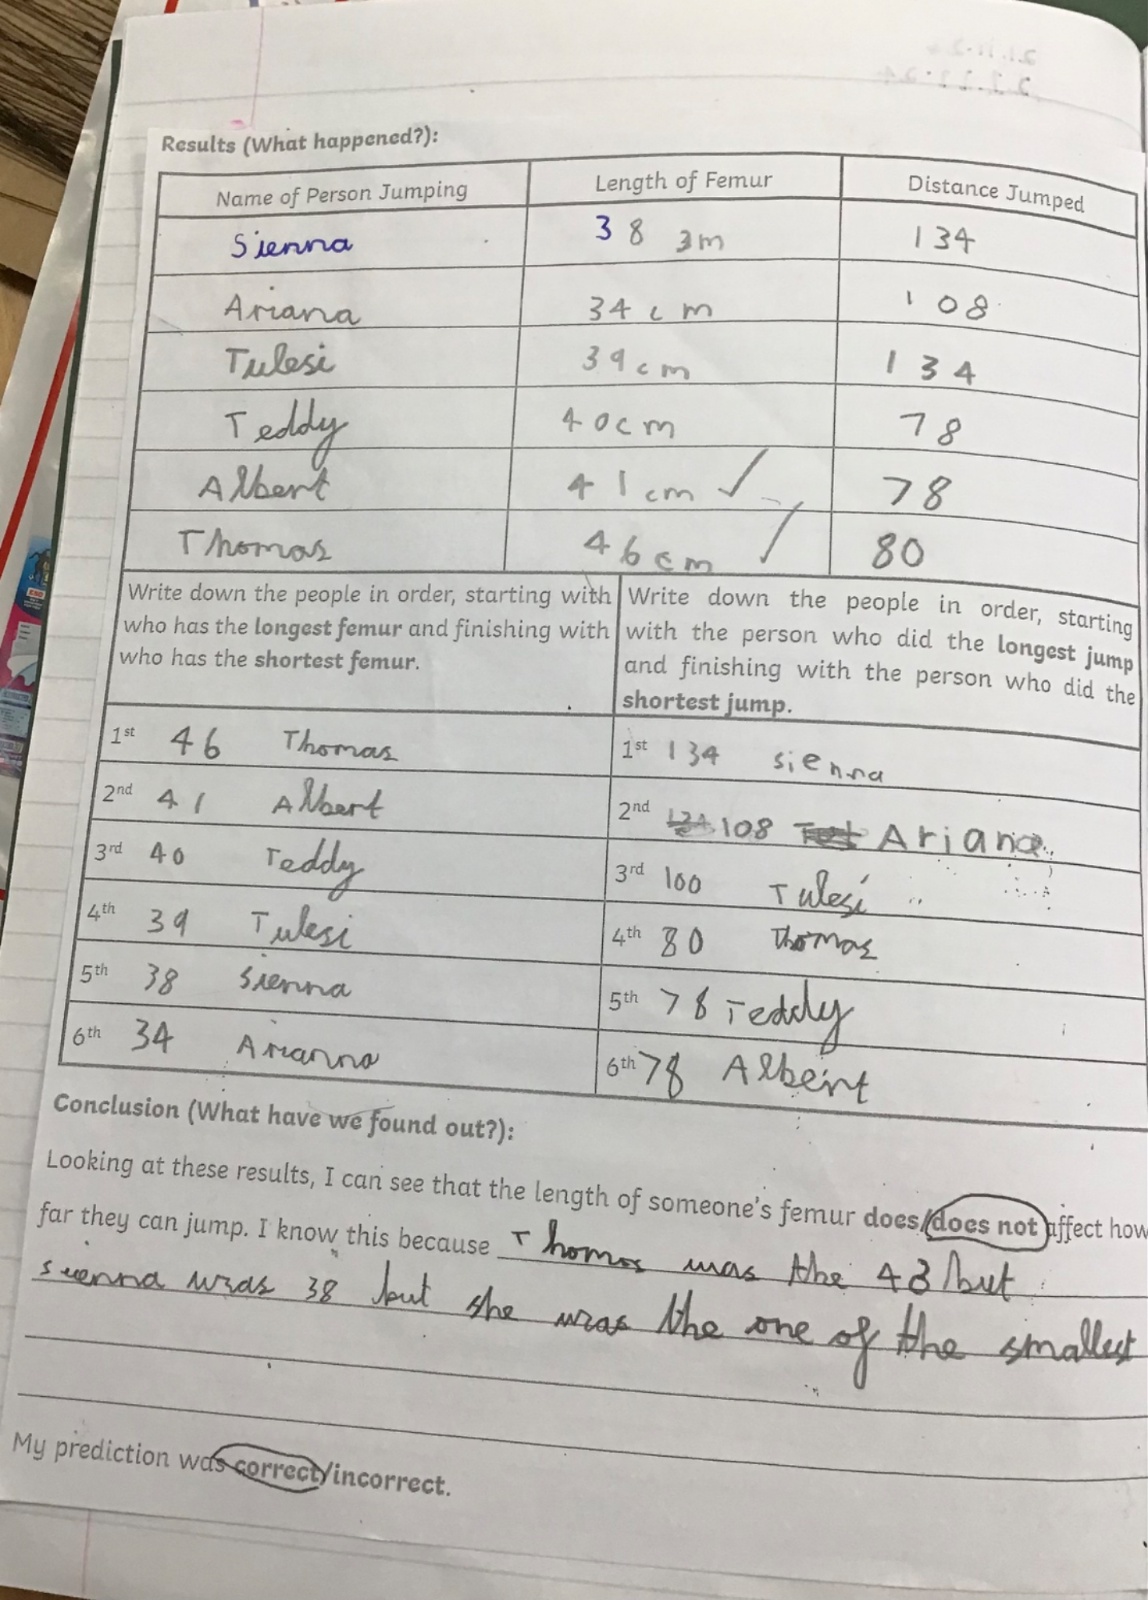 Results (What happened?):
Name of Person Jumping Length of Femur Distance Jumped
Sienna 38 3m 134
Ariana 34cm 108
Tulesi 39cm 134
Teddy 40cm 78
Albert 41cm ✓ 78
Thomas 46cm ✓ 80
Write down the people in order, starting with
who has the longest femur and finishing with
who has the shortest femur.
Write down the people in order, starting
with the person who did the longest jump
and finishing with the person who did the
shortest jump.
1st 46 Thomas
2nd 41 Albert
3rd 40 Teddy
4th 39 Tulesi
5th 38 Sienna
6th 34 Arianna
1st 134 sienna
2nd 108 Ariana
3rd 100 Tulesi
4th 80 Thomas
5th 78 Teddy
6th 78 Albert
Conclusion (What have we found out?):
Looking at these results, I can see that the length of someone's femur does/does not affect how
far they can jump. I know this because Thomas was the 43 but
sienna was 38 but she was the one of the smallest
My prediction was correct/incorrect.